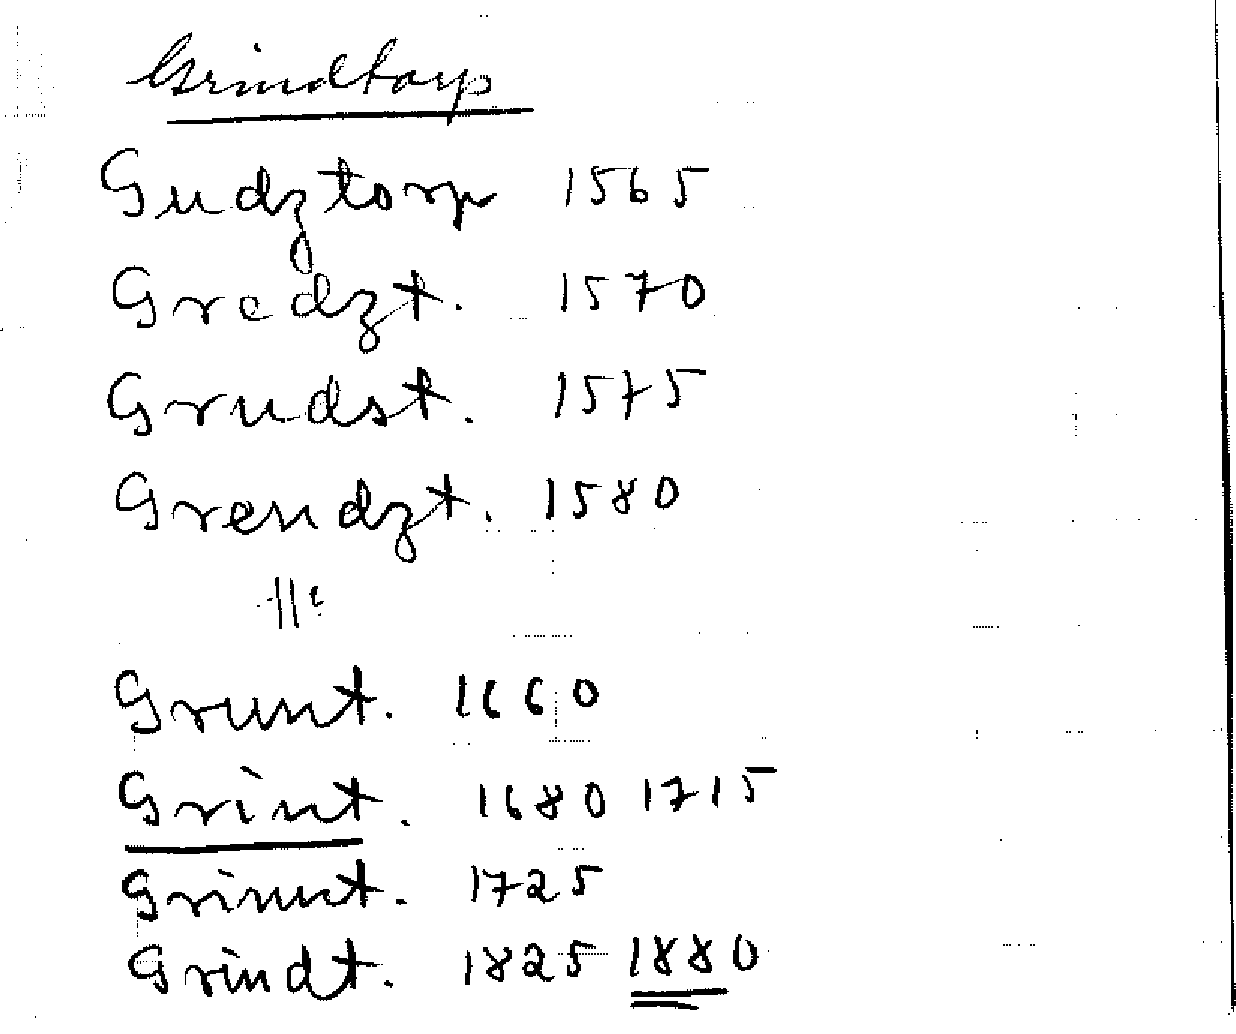 Grindtorp
Gudztorp 1565
Gredzt. 1570
Grudst. 1575
Grendzt. 1580
Grunt. 1660
Grint. 1680 1715
Grinnt. 1725
Grindt. 1825 1880